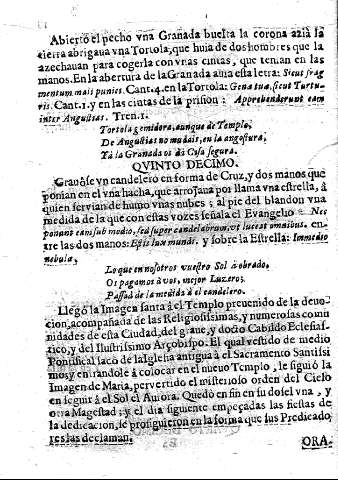 Abierto el pecho vna Granada buelta la corona azia la
tierra abrigaua vna Tortola, que huia de dos hombres que la
azechauan para cogerla con vnas cintas, que tenian en las
manos. En la abertura de la Granada auia esta letra: Sicut frag
mentum mali punici. Cant. 4. en la Tortola: Gena tua, sicut Turtu-
ris. Cant. 1. y en las cintas de la prision: Apprehenderunt eam
inter Angustias. Tren. 1.
Tortola gemidora, aunque de Templo,
De Angustias no mudais, en la angostura,
Ya la Granada os dà Casa segura.
QVINTO DECIMO.
Grauòse vn candelero en forma de Cruz, y dos manos que
ponian en el vna hacha, que arrojaua por llama vna estrella, à
quien seruian de humo vnas nubes; al pie del blandon vna
medida de la que con estas vozes señala el Evangelio: Nec
ponunt eam sub modio, sed super candelabrum, vt luceat omnibus, en-
tre las dos manos: Estis lux mundi. y sobre la Estrella: In medio
nebulæ,
Lo que en nosotros vuestro Sol à obrado,
Os pagamos à vos, mejor Luzero;
Passad de la medida à el candelero.
Llegò la Imagen santa à el Templo preuenido de la deuo-
cion, acompañada de las Religiosissimas, y numerosas comu
nidades de esta Ciudad, del graue, y docto Cabildo Eclesias-
tico, y del Ilustrissimo Arçobispo. El qual vestido de medio
Pontifical sacò de la Iglesia antigua à el Sacramento Santissi
mo; y entrandole à colocar en el nueuo Templo, le siguiò la
Imagen de Maria, pervertido el misterioso orden del Cielo
en seguir à el Sol el Aurora. Quedò en fin en su dosel vna, y
otra Magestad; y el dia siguiente empeçadas las fiestas de
la dedicacion, se prosiguieron en la forma que sus Predicado,
res las declaman.
ORA-